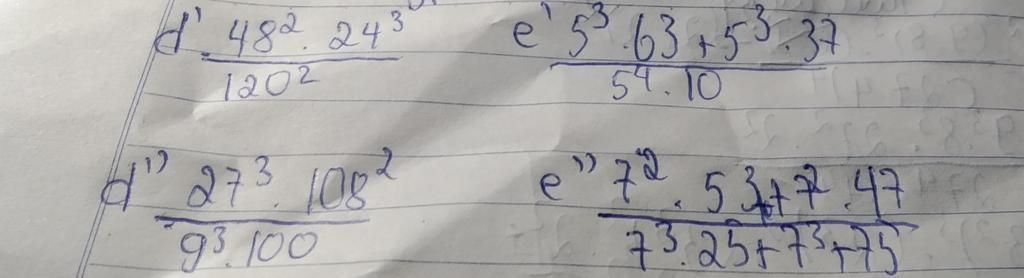 d' 48² · 24³ / 120²
e' 5³ · 63 + 5³ · 37 / 5⁴ · 10
d'' 27³ · 108² / 9³ · 100
e'' 7² · 53 + 7² · 47 / 7³ · 25 + 7³ + 75